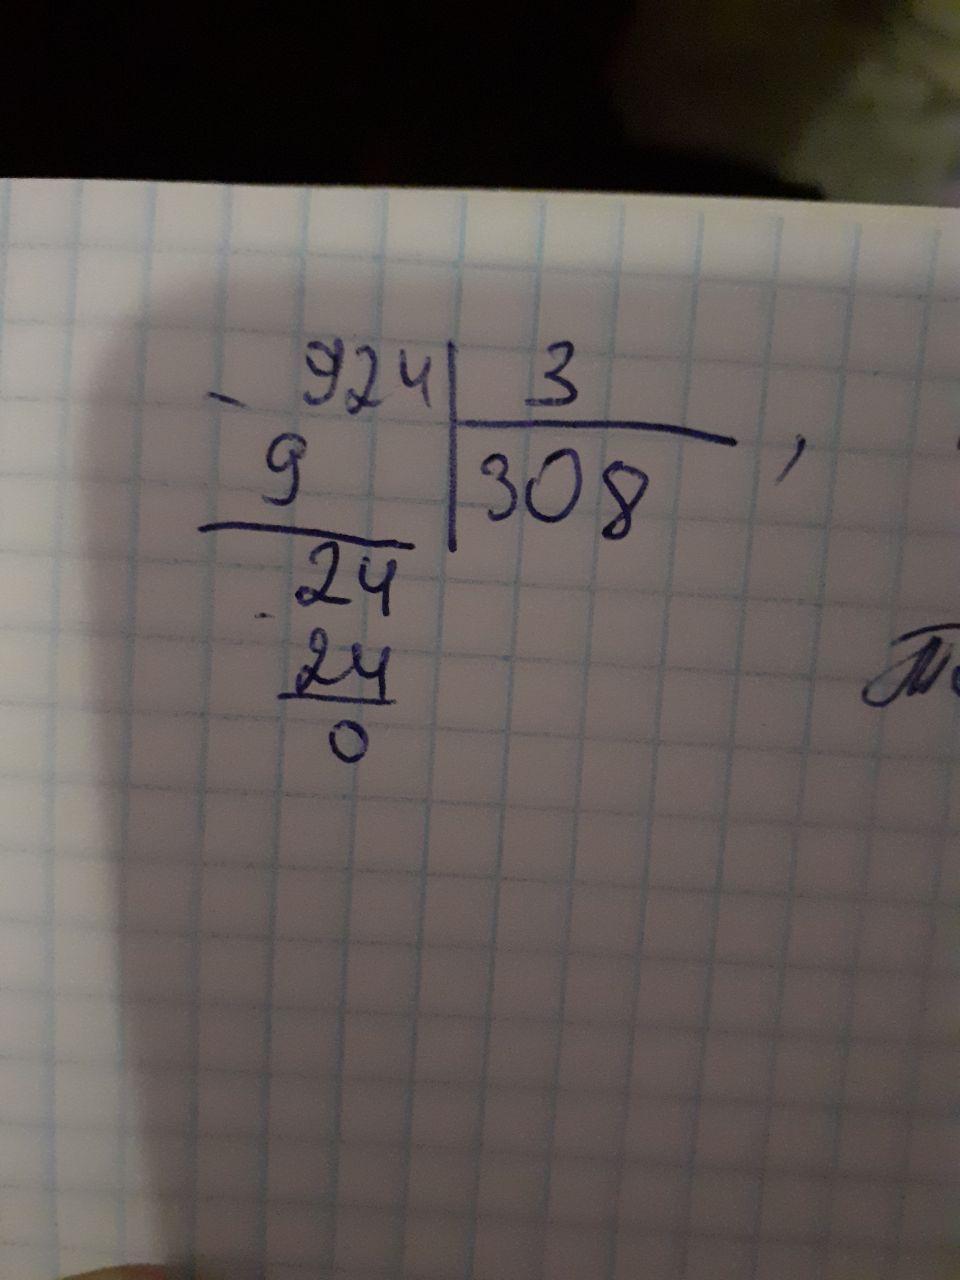 - 924 | 3 ,
9 | 308
24
- 24
0